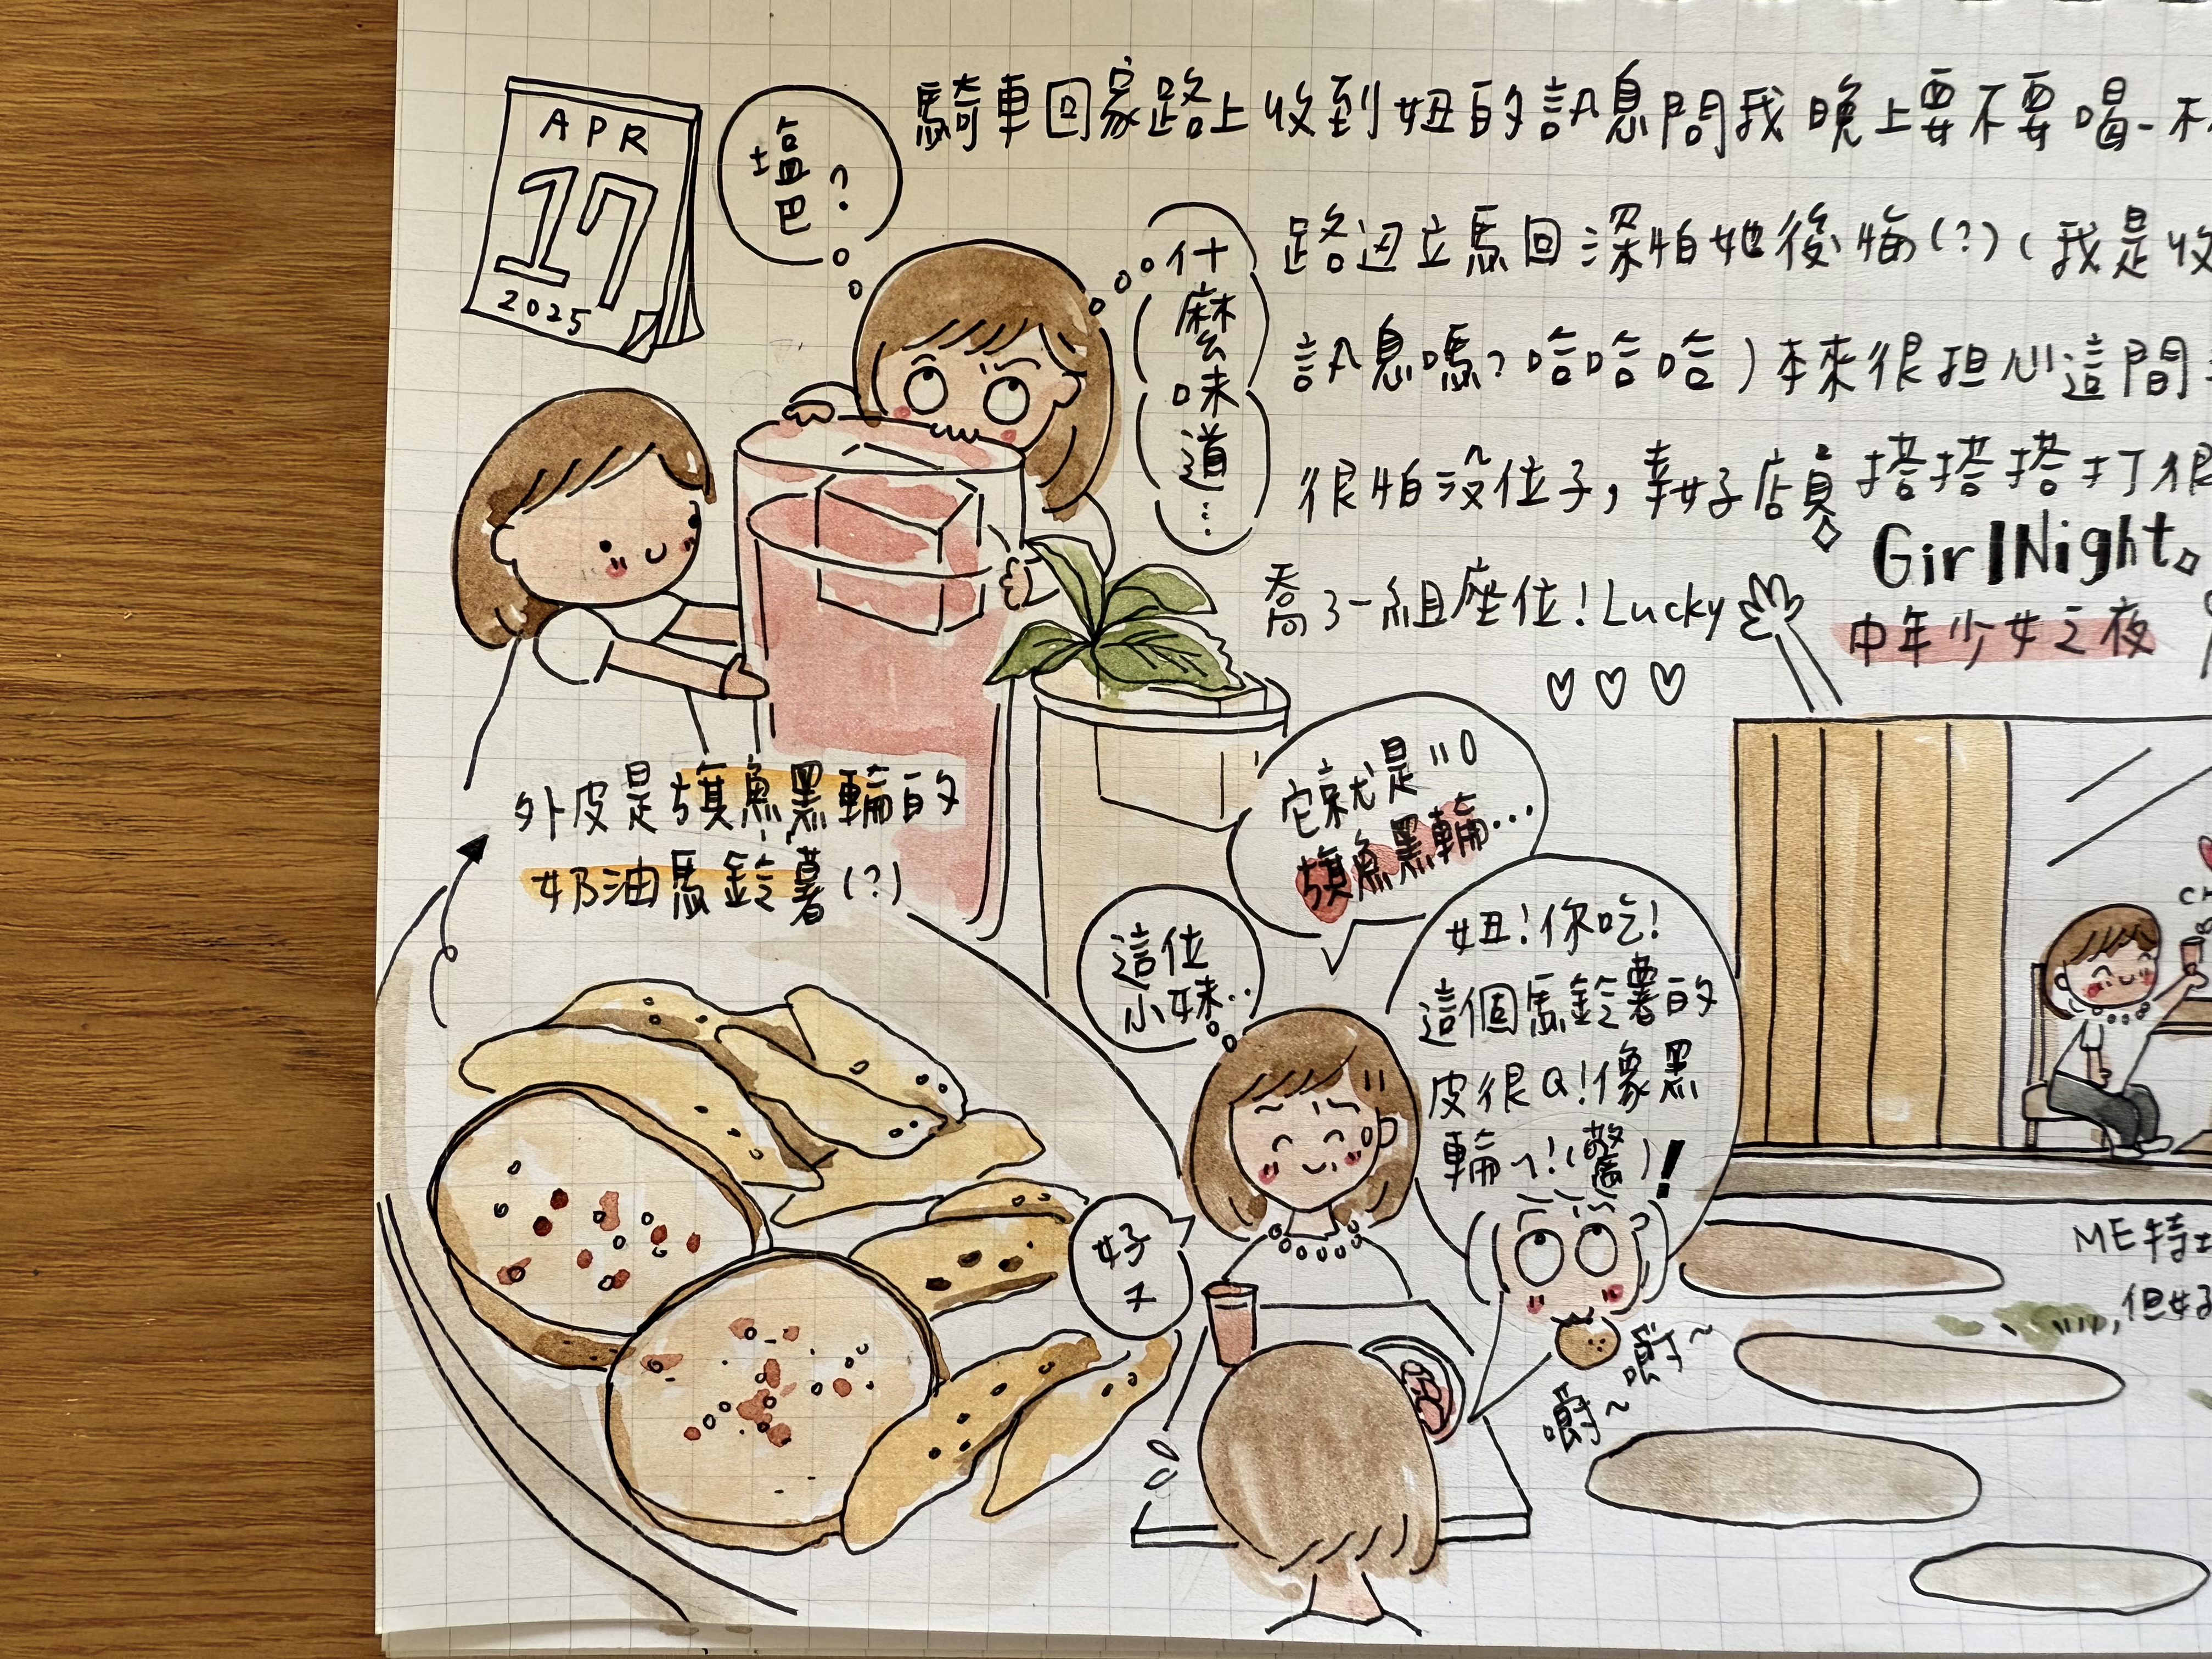 APR
17
2025
塩巴?
什麼味道…
騎車回家路上收到妞的訊息問我晚上要不要喝一
路迌立馬回深怕她後悔(?)(我是收
訊息嗎?哈哈哈)本來很担心這間
很怕没位子,幸好店員搭搭搭打很
喬了一組座位!Lucky
GirlNight
中年少女之夜
外皮是旗魚黑輪的
奶油馬鈴薯(?)
它就是
旗魚黑輪…
這位
小妹..
妞!你吃!
這個馬鈴薯的
皮很Q!像黑
輪ㄟ!(驚)!
好
ㄡ
嚼~
嚼~
ME特
,但好